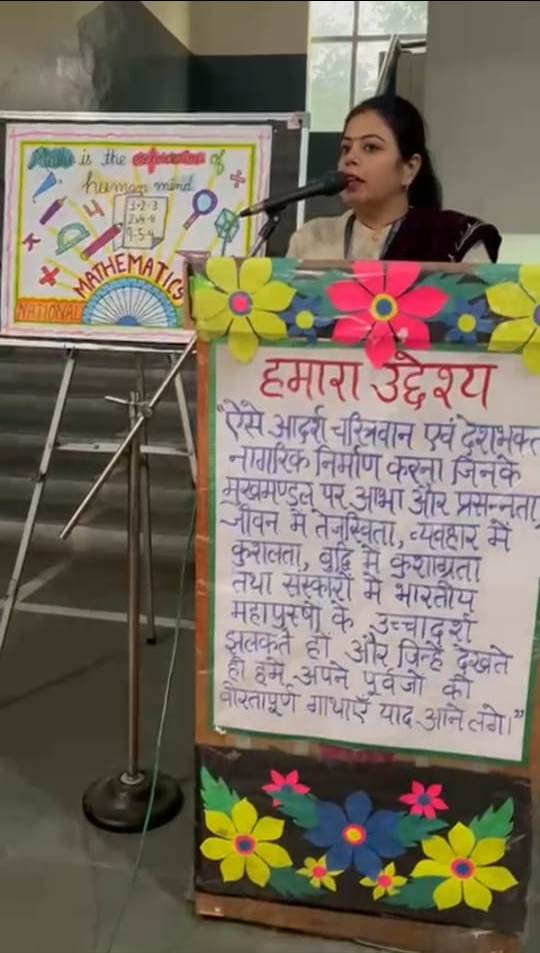 Maths is the expression of
human mind.
1+2=3
MATHEMATICS
NATIONAL
हमारा उद्देश्य
"ऐसे आदर्श चरित्रवान एवं देशभक्त
नागरिक निर्माण करना जिनके
मुखमण्डल पर आभा और प्रसन्नता,
जीवन में तेजस्विता, व्यवहार में
कुशलता, बुद्धि में कुशाग्रता
तथा संस्कारों में भारतीय
महापुरुषों के उच्चादर्श
झलकते हों और जिन्हें देखते
ही हमें अपने पूर्वजों की
वीरतापूर्ण गाथाएँ याद आने लगे।"